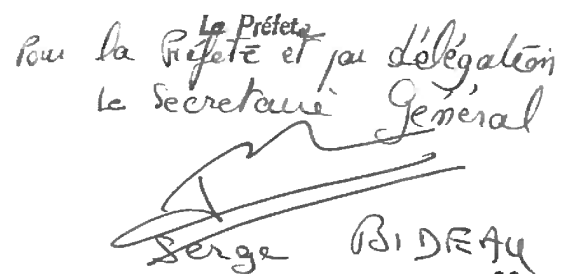 La Préfète
Pour la Préfète et par délégation
Le Secretaire Général
Serge BIDEAU